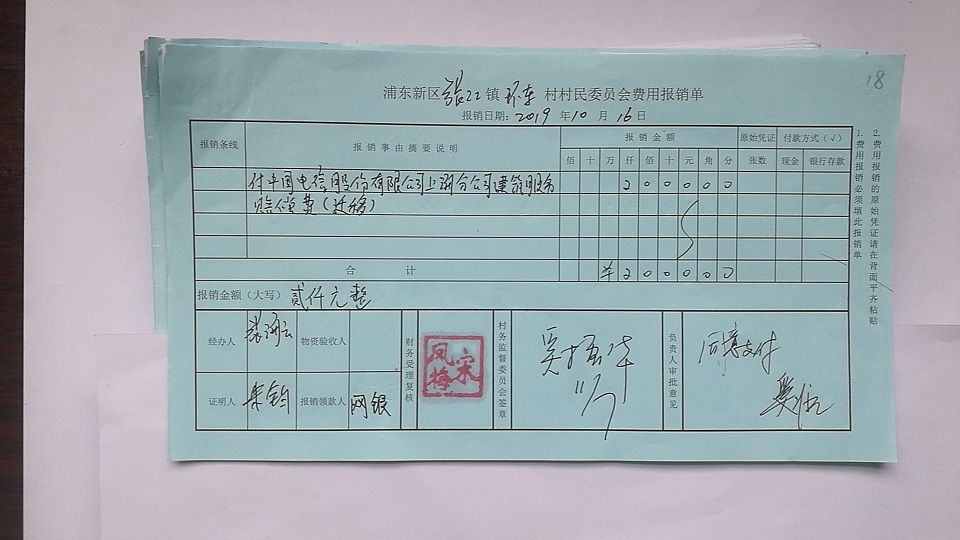 18
浦东新区张江镇环东村村民委员会费用报销单
报销日期：2019年10月16日
报销条线 报销事由摘要说明 报销金额 原始凭证 付款方式（√）
佰 十 万 仟 佰 十 元 角 分 张数 现金 银行存款
付中国电信股份有限公司上海分公司建筑服务 200000
赔偿费（迁移）
合计 ¥200000
报销金额（大写） 贰仟元整
经办人 物资验收人
证明人 朱钧 报销领款人 网银
财务受理复核
宋凤梅
村务监督委员会签章
11/7
负责人审批意见
同意支付
1.费用报销必须填此报销单
2.费用报销的原始凭证请在背面平齐粘贴